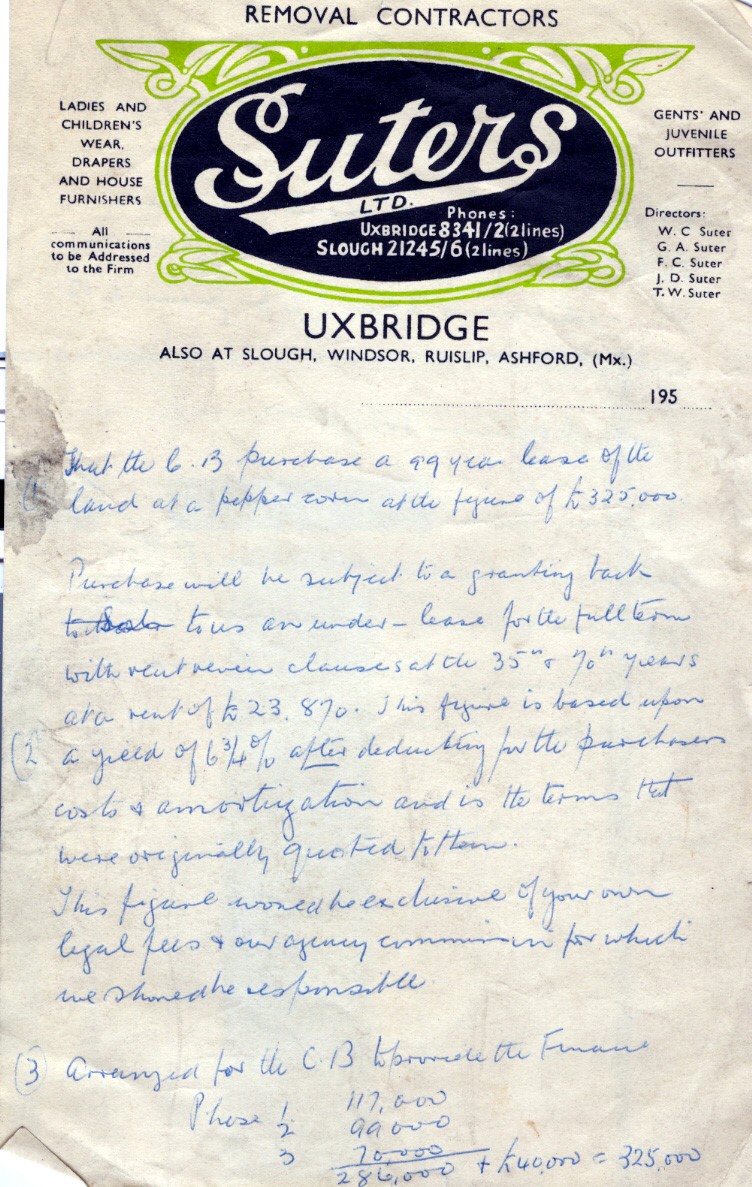 REMOVAL CONTRACTORS
LADIES AND
CHILDREN'S
WEAR,
DRAPERS
AND HOUSE
FURNISHERS
All
communications
to be Addressed
to the Firm
Suters
LTD.
Phones:
UXBRIDGE 8341/2 (2 lines)
SLOUGH 21245/6 (2 lines)
GENTS' AND
JUVENILE
OUTFITTERS
Directors:
W. C Suter
G. A. Suter
F. C. Suter
J. D. Suter
T. W. Suter
UXBRIDGE
ALSO AT SLOUGH, WINDSOR, RUISLIP, ASHFORD, (Mx.)
195
(1 That the C.B purchase a 99 year lease of the
land at a pepper corn at the figure of £325,000
Purchase will be subject to a granting back
to us an under-lease for the full term
with rent review clauses at the 35th & 70th years
at a rent of £23,870. This figure is based upon
(2 a yield of 6¾% after deducting for the purchasers
costs & amortization and is the terms that
were originally quoted to them.
This figure would be exclusive of your own
legal fees & our agency commission for which
we should be responsible
(3) Arranged for the C.B to provide the Finance
Phase 1 117,000
2 99000
3 70,000
286,000 + £40,000 = 325,000